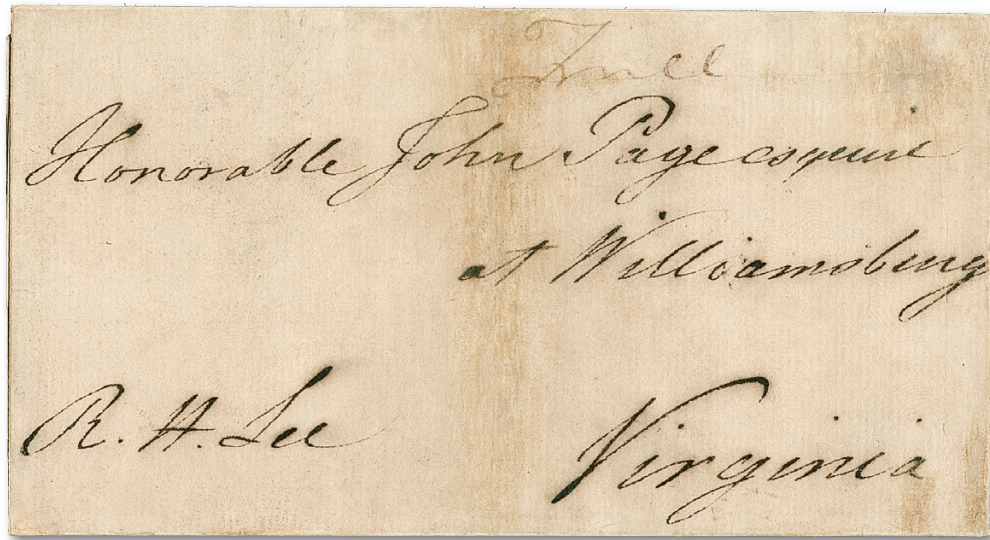 Free
Honorable John Page esquire
at Williamsburg
R. H. Lee
Virginia